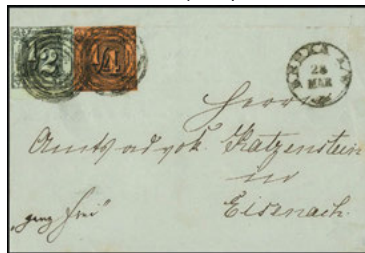 28
MAR
Herrn
Amtsadvok. Katzenstein
in
Eisenach.
„ganz frei"